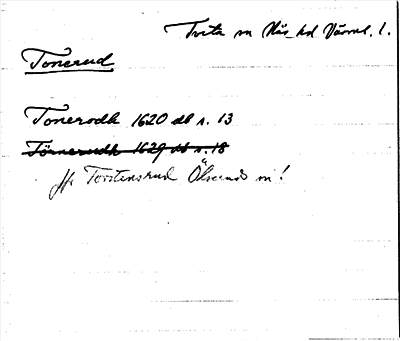 Tveta sn Näs hd Värml. l.
Tonerud
Tonerudh 1620 db s. 13
Törnerudh 1629 db s. 18
Jfr Torstensrud Ölserud sn!